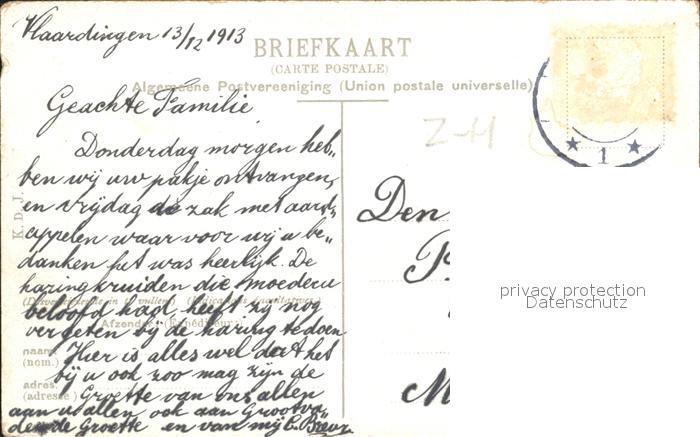 Vlaardingen 13/12 1913
BRIEFKAART
(CARTE POSTALE)
Algemeene Postvereeniging (Union postale universelle)
Geachte Familie
Z-H
Donderdag morgen heb„
ben wij uw pakje ontvangen,
en vrijdag de zak met aard„
appelen waar voor wij u be„
danken het was heerlijk. De
haringkruiden die moeder u
beloofd had heeft zij nog
vergeten bij de haring te doen
Hier is alles wel dat het
bij u ook zoo mag zijn de
Groette van ons allen
aan u allen ook aan Grootva„
de Groette en van mij C.
K. D. J.
Afzender (Expéditeur)
naam:
(nom.)
adres:
(adresse)
Den
M
1
privacy protection
Datenschutz